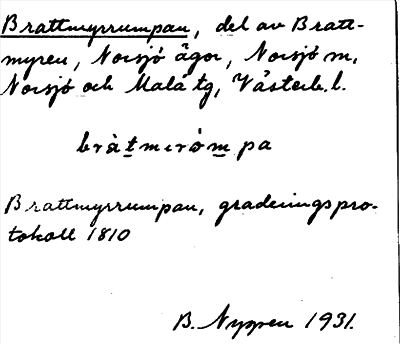 Brattmyrrumpan, del av Bratt-
myren, Norsjö ägor, Norsjö m,
Norsjö och Malå tg, Västerb. l.
bràt̲mɩróm̲pa
Brattmyrrumpan, graderingspro-
tokoll 1810
B. Nygren 1931.